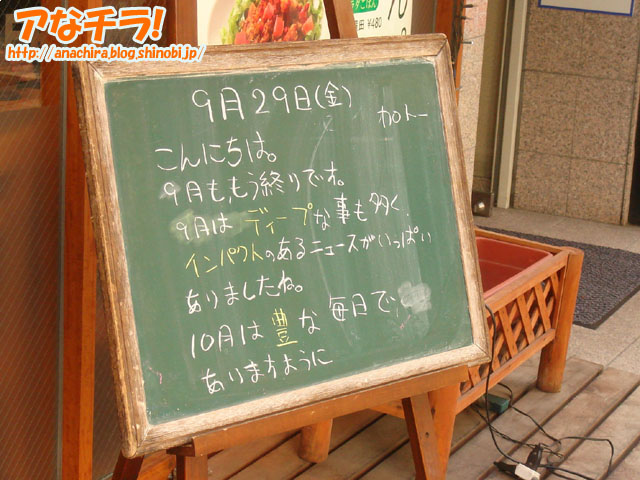 アなチラ!
http://anachira.blog.shinobi.jp/
¥480
9月29日(金)
カロトー
こんにちは。
9月も、もう終りです。
9月は ディープな事も多く、
インパクトのあるニュースがいっぱい
ありましたね。
10月は豊な毎日で
ありますように